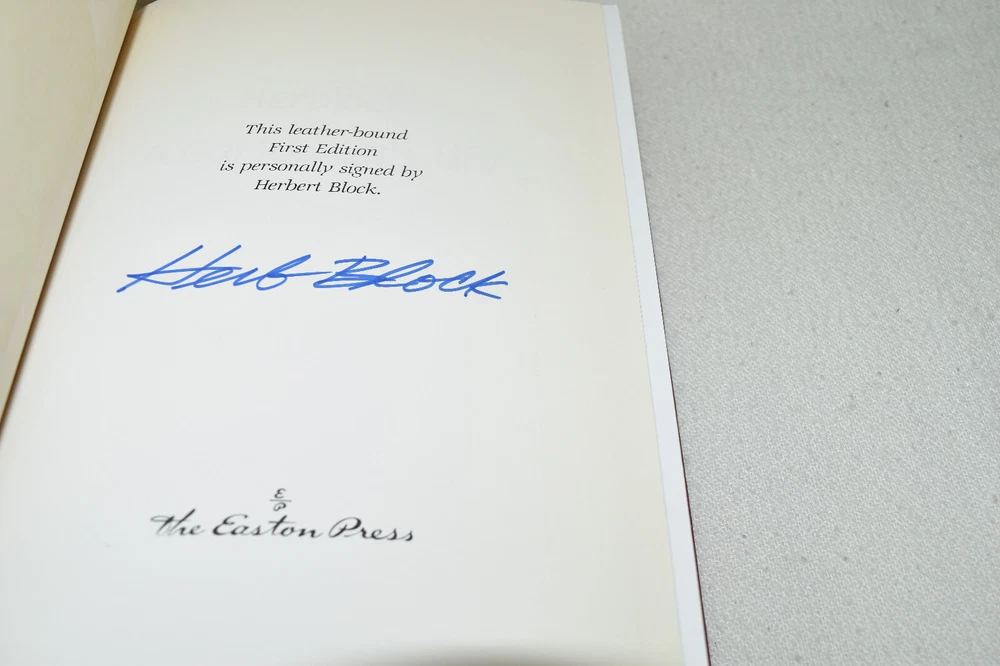 This leather-bound
First Edition
is personally signed by
Herbert Block.
Herb Block
E
P
the Easton Press